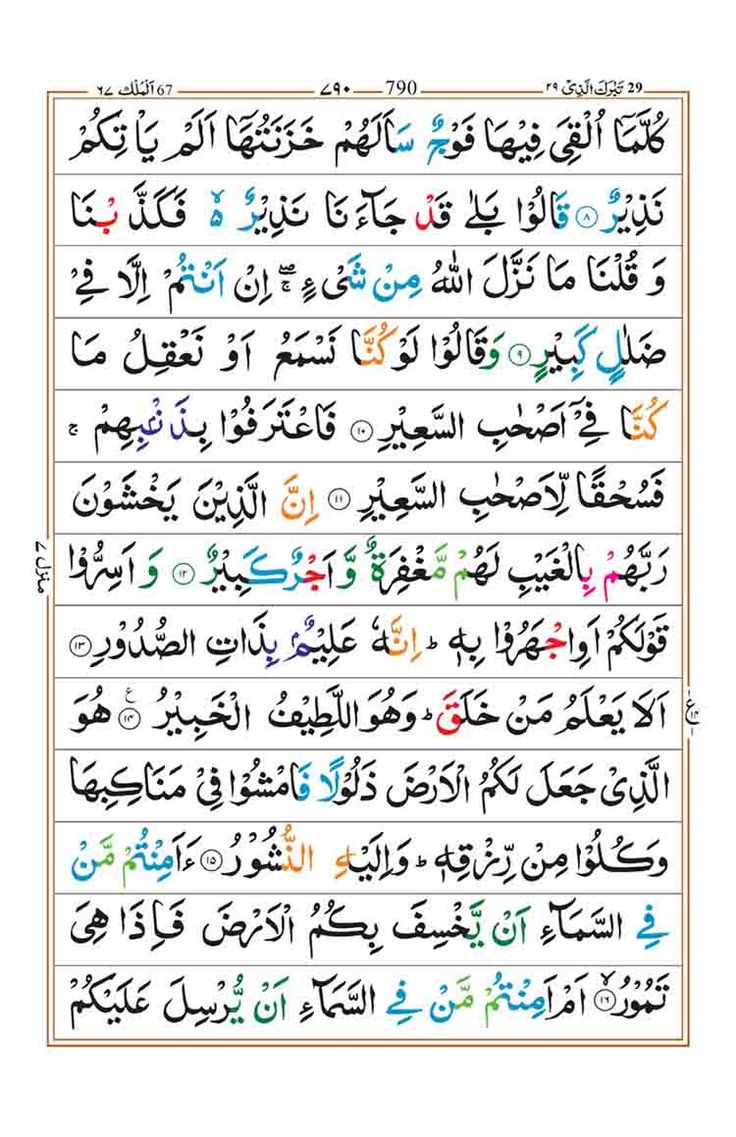 29 تَبٰرَكَ الَّذِیْ ۲۹ 790 ۷۹۰ 67 اَلْمُلْك ۶۷
كُلَّمَاۤ اُلْقِیَ فِیْهَا فَوْجٌ سَاَلَهُمْ خَزَنَتُهَاۤ اَلَمْ یَاْتِكُمْ
نَذِیْرٌ ۸ قَالُوْا بَلٰی قَدْ جَآءَنَا نَذِیْرٌ ۙ۵ فَكَذَّبْنَا
وَ قُلْنَا مَا نَزَّلَ اللّٰهُ مِنْ شَیْءٍ ۖۚ اِنْ اَنْتُمْ اِلَّا فِیْ
ضَلٰلٍ كَبِیْرٍ ۹ وَقَالُوْا لَوْ كُنَّا نَسْمَعُ اَوْ نَعْقِلُ مَا
كُنَّا فِیْۤ اَصْحٰبِ السَّعِیْرِ ۱۰ فَاعْتَرَفُوْا بِذَنْۢبِهِمْ ۚ
فَسُحْقًا لِّاَصْحٰبِ السَّعِیْرِ ۱۱ اِنَّ الَّذِیْنَ یَخْشَوْنَ
رَبَّهُمْ بِالْغَیْبِ لَهُمْ مَّغْفِرَةٌ وَّاَجْرٌ كَبِیْرٌ ۱۲ وَ اَسِرُّوْا
قَوْلَكُمْ اَوِاجْهَرُوْا بِهٖ ؕ اِنَّهٗ عَلِیْمٌۢ بِذَاتِ الصُّدُوْرِ ۱۳
اَلَا یَعْلَمُ مَنْ خَلَقَ ؕ وَهُوَ اللَّطِیْفُ الْخَبِیْرُ ۱۴ ع هُوَ
الَّذِیْ جَعَلَ لَكُمُ الْاَرْضَ ذَلُوْلًا فَامْشُوْا فِیْ مَنَاكِبِهَا
وَكُلُوْا مِنْ رِّزْقِهٖ ؕ وَاِلَیْهِ النُّشُوْرُ ۱۵ ءَاَمِنْتُمْ مَّنْ
فِی السَّمَآءِ اَنْ یَّخْسِفَ بِكُمُ الْاَرْضَ فَاِذَا هِیَ
تَمُوْرُ ۙ۱۶ اَمْ اَمِنْتُمْ مَّنْ فِی السَّمَآءِ اَنْ یُّرْسِلَ عَلَیْكُمْ
منزل ۷